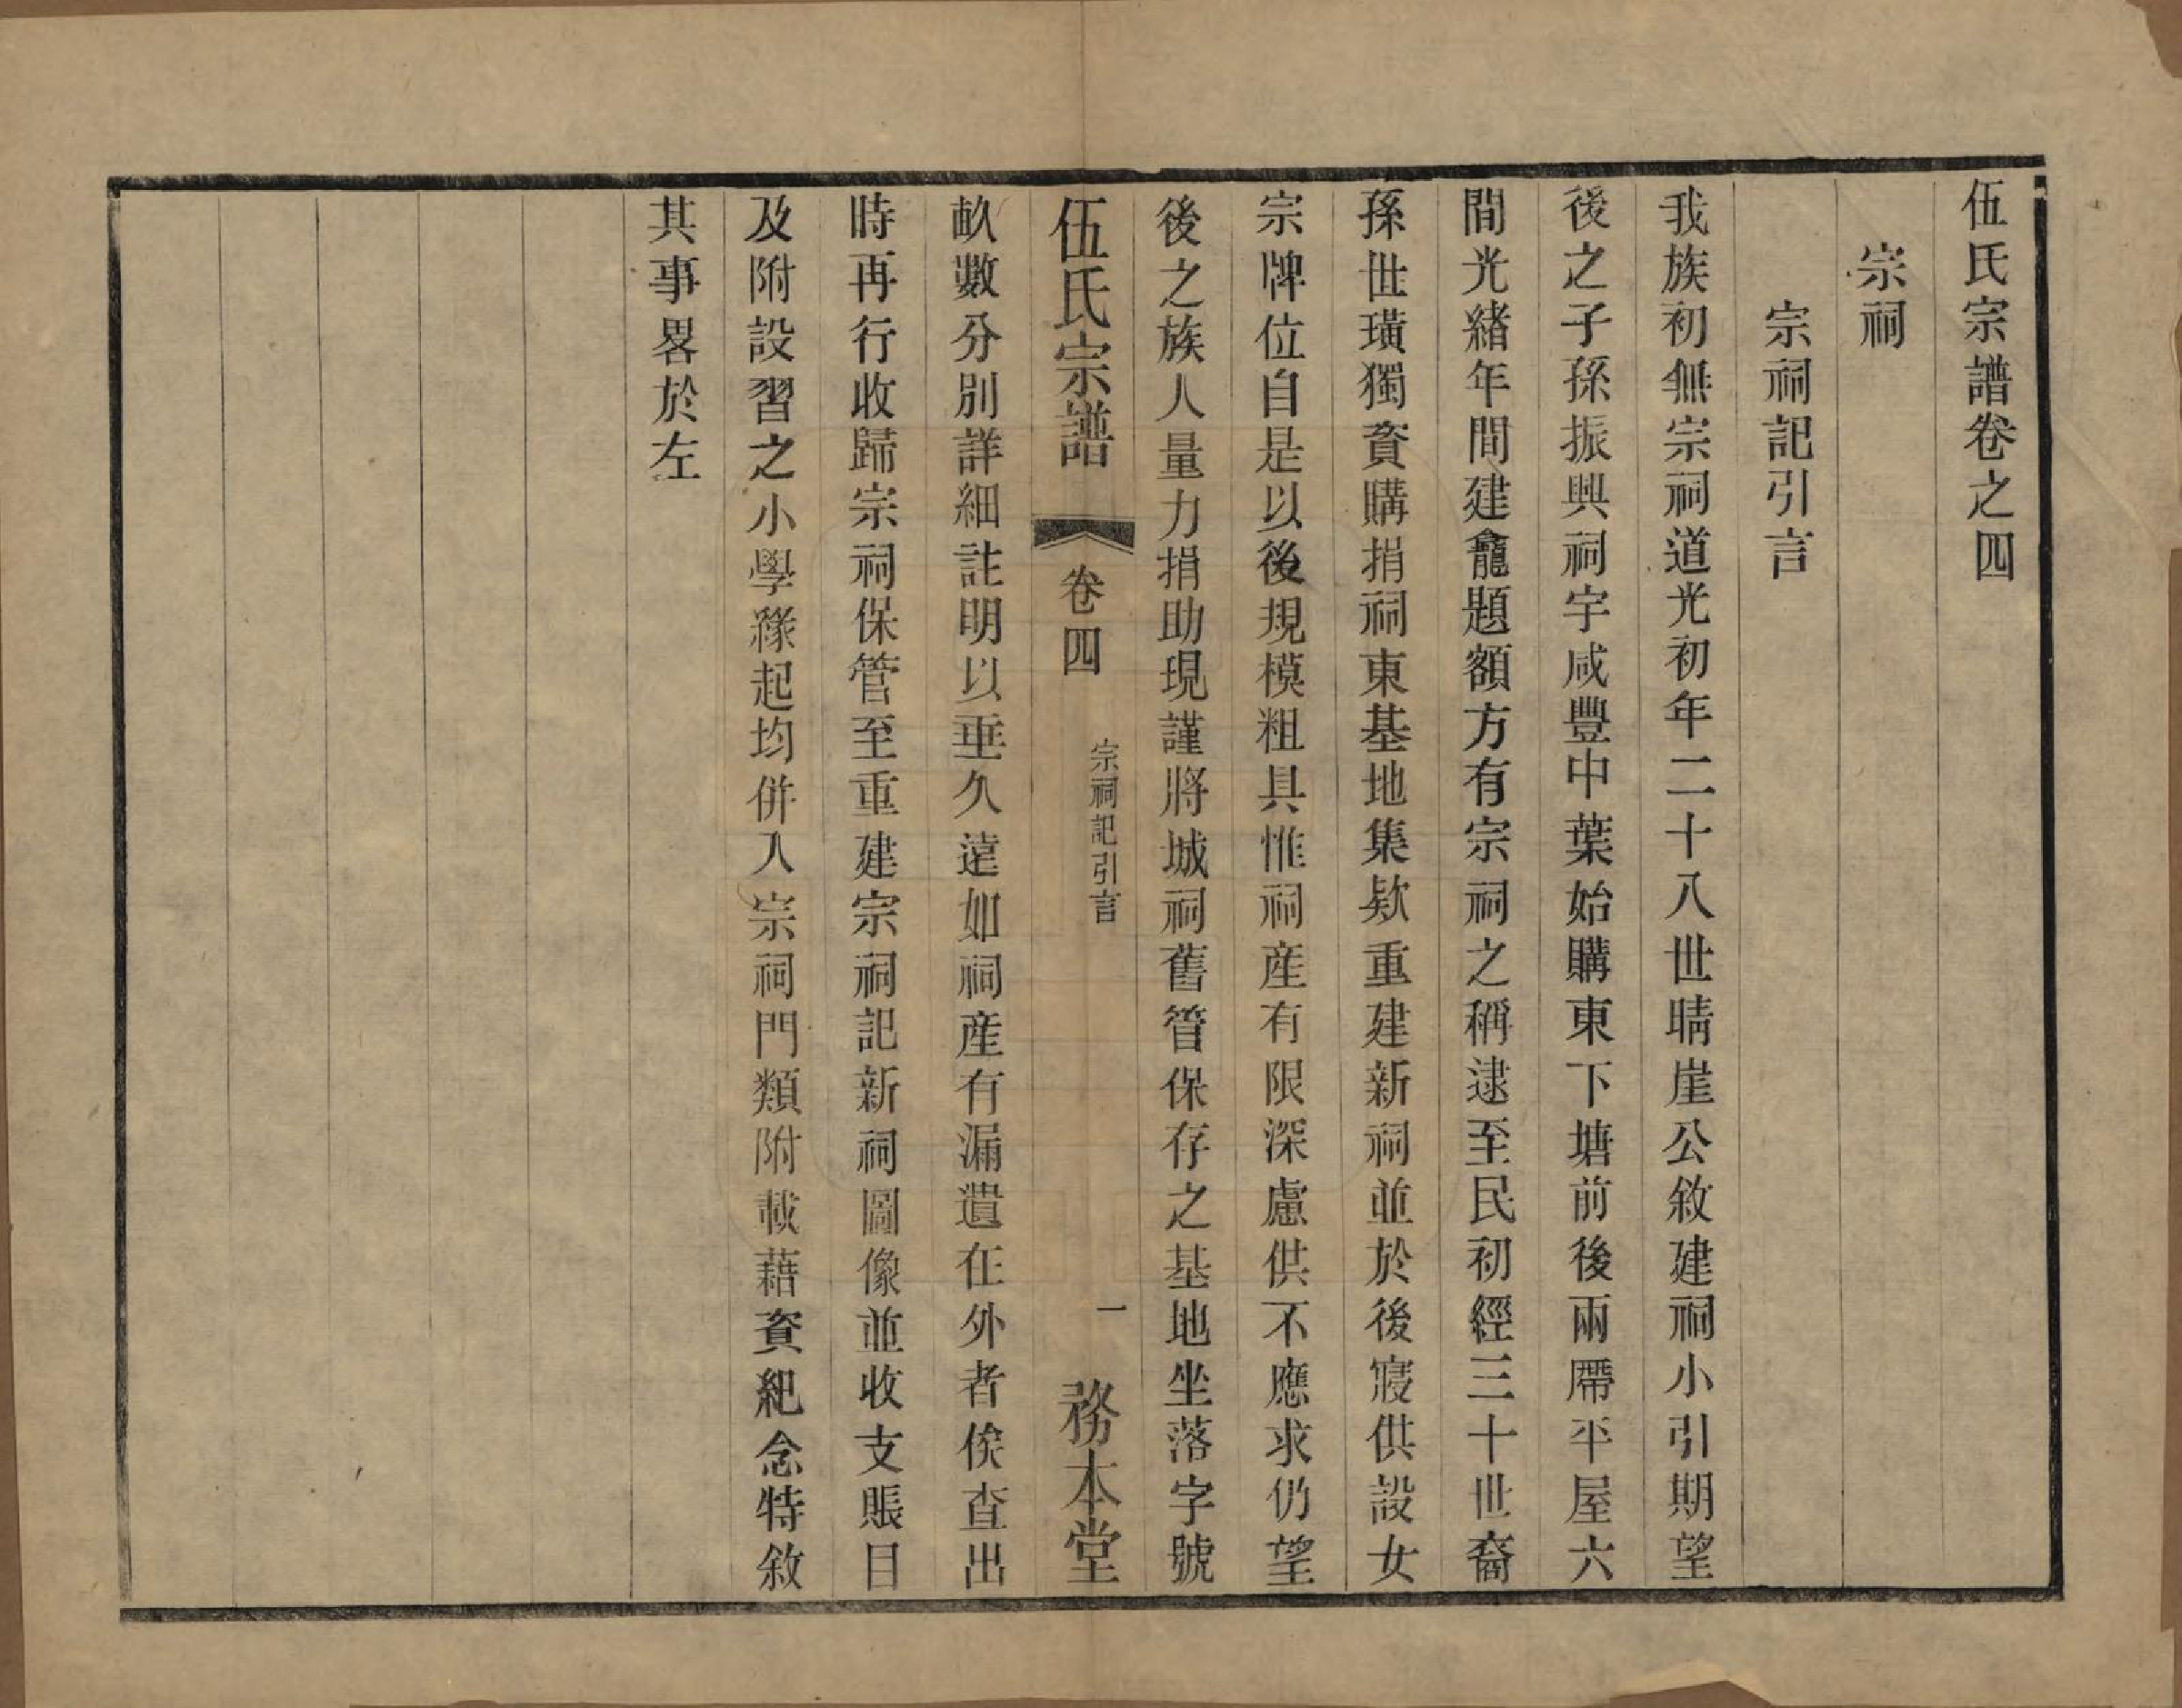 伍氏宗譜卷之四
宗祠
宗祠記引言
我族初無宗祠道光初年二十八世晴崖公敘建祠小引期望
後之子孫振興祠宇咸豐中葉始購東下塘前後兩廗平屋六
間光緒年間建龕題額方有宗祠之稱逮至民初經三十世裔
孫世璜獨資購捐祠東基地集欵重建新祠並於後寢供設女
宗牌位自是以後規模粗具惟祠產有限深慮供不應求仍望
後之族人量力捐助現謹將城祠舊管保存之基地坐落字號
伍氏宗譜 卷四 宗祠記引言 一 務本堂
畝數分別詳細註明以垂久遠如祠產有漏遺在外者俟查出
時再行收歸宗祠保管至重建宗祠記新祠圖像並收支賬目
及附設習之小學緣起均併入宗祠門類附載藉資紀念特敘
其事畧於左